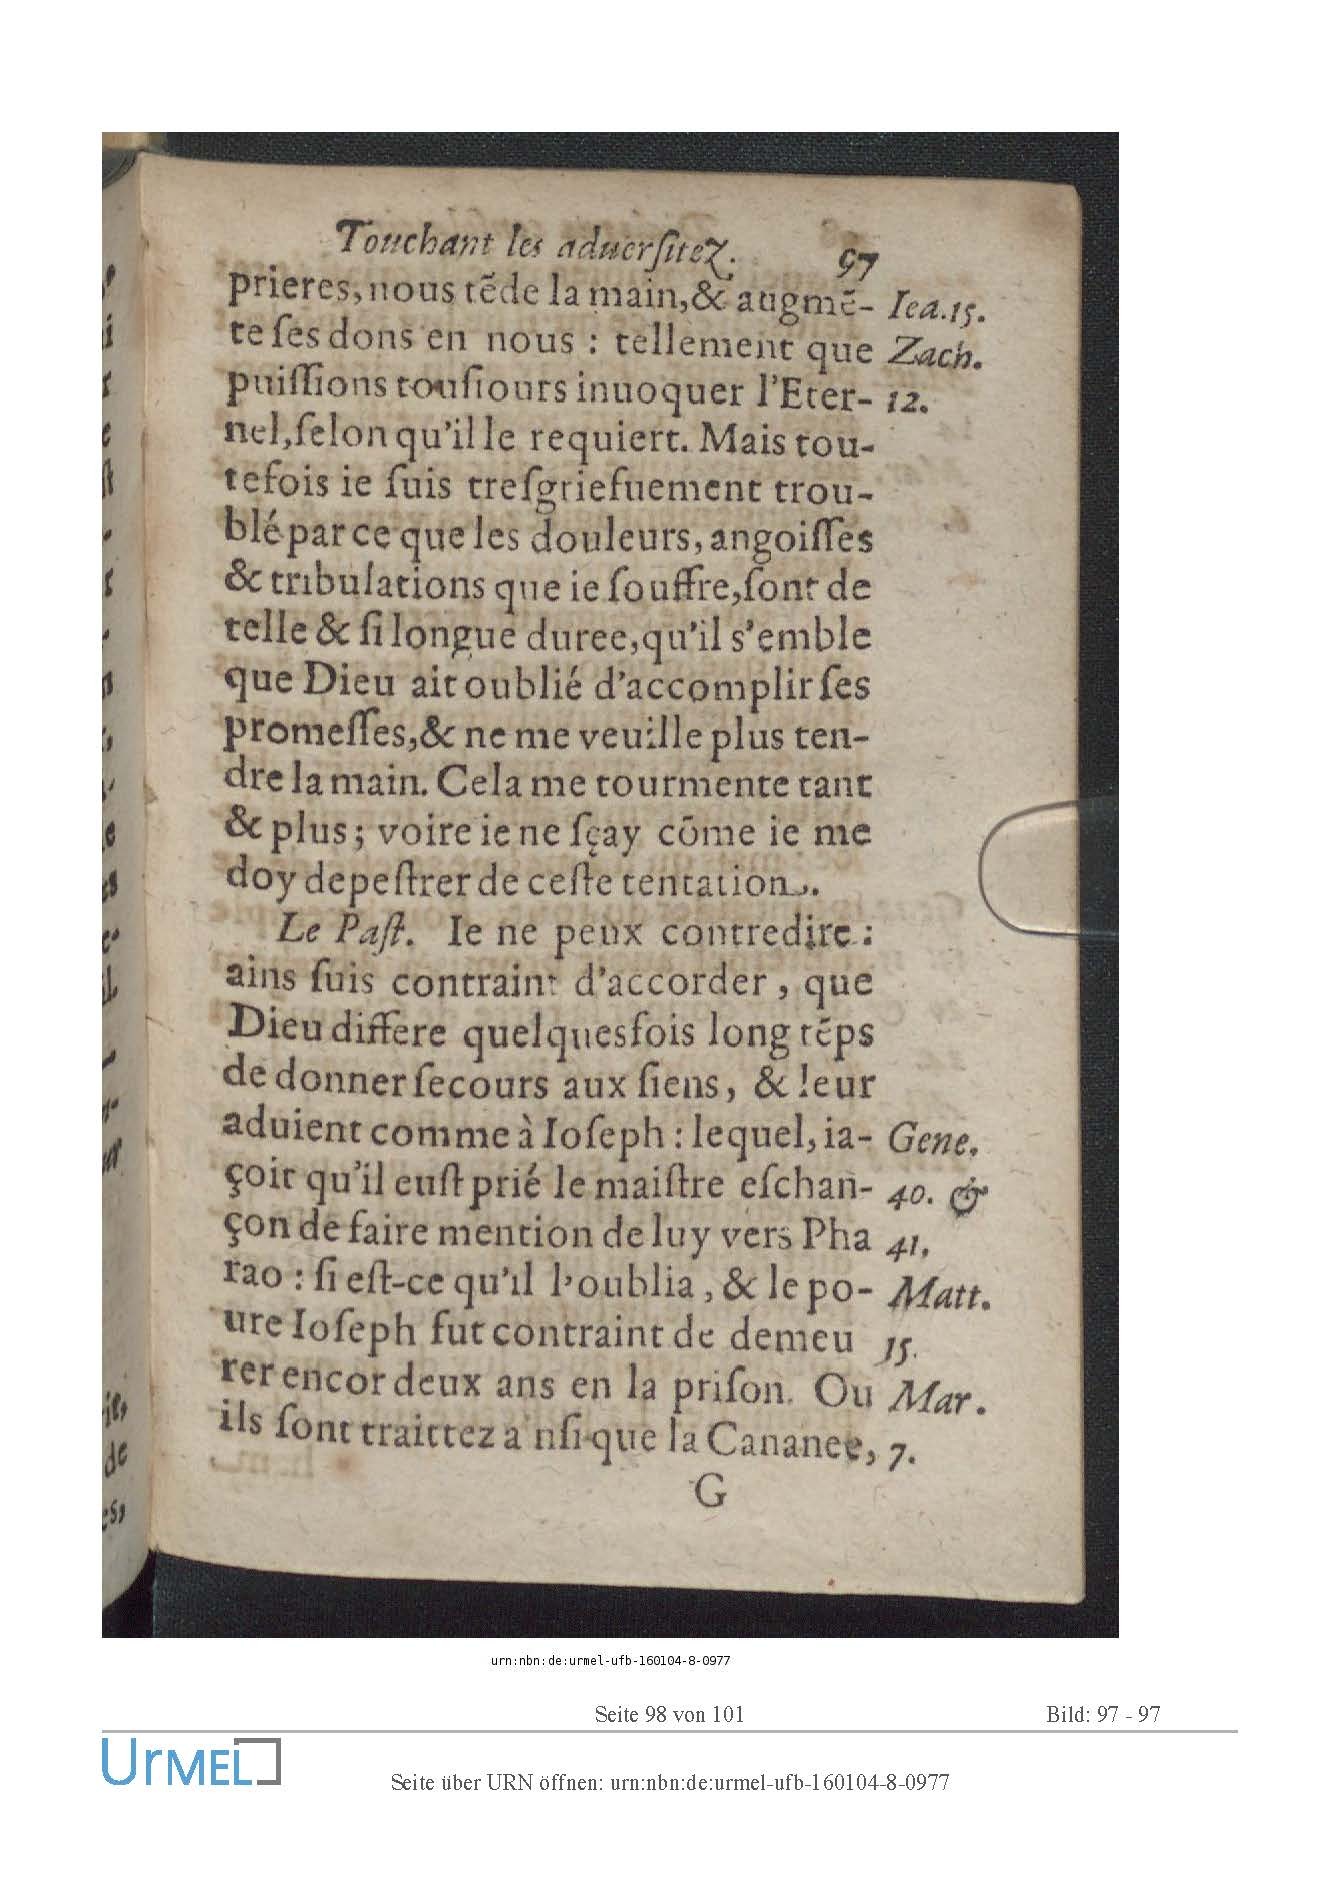 Touchant les aduerſitez. 97
prieres, nous tēde la main, & augmē- Iea.15.
te ſes dons en nous : tellement que Zach.
puiſſions touſiours inuoquer l'Eter- 12.
nel, ſelon qu'il le requiert. Mais tou-
tefois ie ſuis treſgriefuement trou-
blé par ce que les douleurs, angoiſſes
& tribulations que ie ſouffre, ſont de
telle & ſi longue duree, qu'il s'emble
que Dieu ait oublié d'accomplir ſes
promeſſes, & ne me veuille plus ten-
dre la main. Cela me tourmente tant
& plus; voire ie ne ſçay cōme ie me
doy depeſtrer de ceſte tentation.
Le Paſt. Ie ne peux contredire :
ains ſuis contraint d'accorder, que
Dieu differe quelquesfois long tēps
de donner ſecours aux ſiens, & leur
aduient comme à Ioſeph : lequel, ia- Gene.
çoit qu'il euſt prié le maiſtre eſchan- 40. &
çon de faire mention de luy vers Pha 41.
rao : ſi eſt-ce qu'il l'oublia, & le po- Matt.
ure Ioſeph fut contraint de demeu 15.
rer encor deux ans en la priſon. Ou Mar.
ils ſont traittez a nſi que la Cananee, 7.
G
urn:nbn:de:urmel-ufb-160104-8-0977
Seite 98 von 101 Bild: 97 - 97
UrMEL
Seite über URN öffnen: urn:nbn:de:urmel-ufb-160104-8-0977